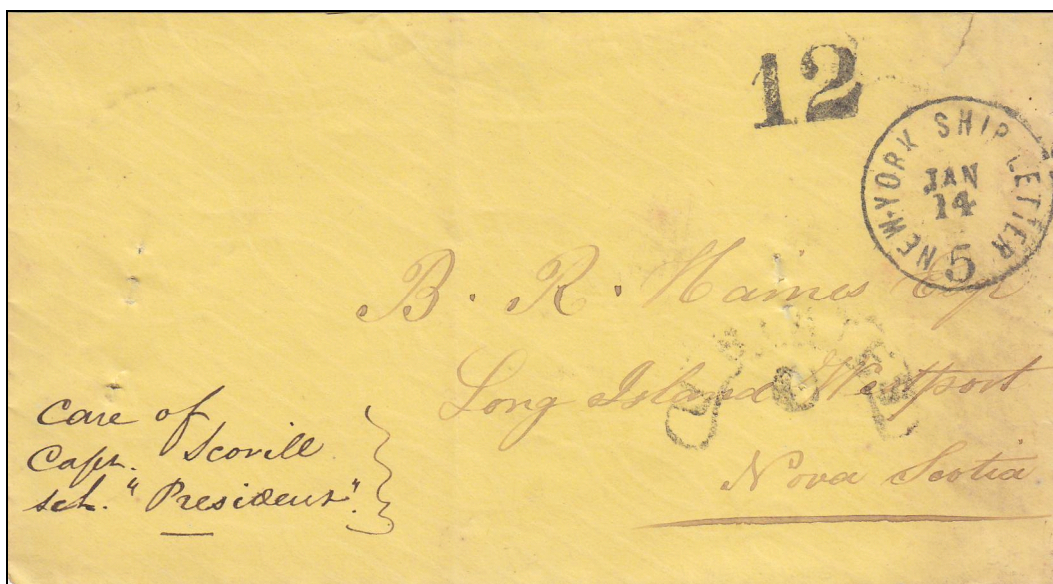 12
NEW-YORK SHIP LETTER
JAN
14
5
B. R. Haines Esqr
Long Island Westport
Nova Scotia
Care of
Capt. Scovill
sch. "President".